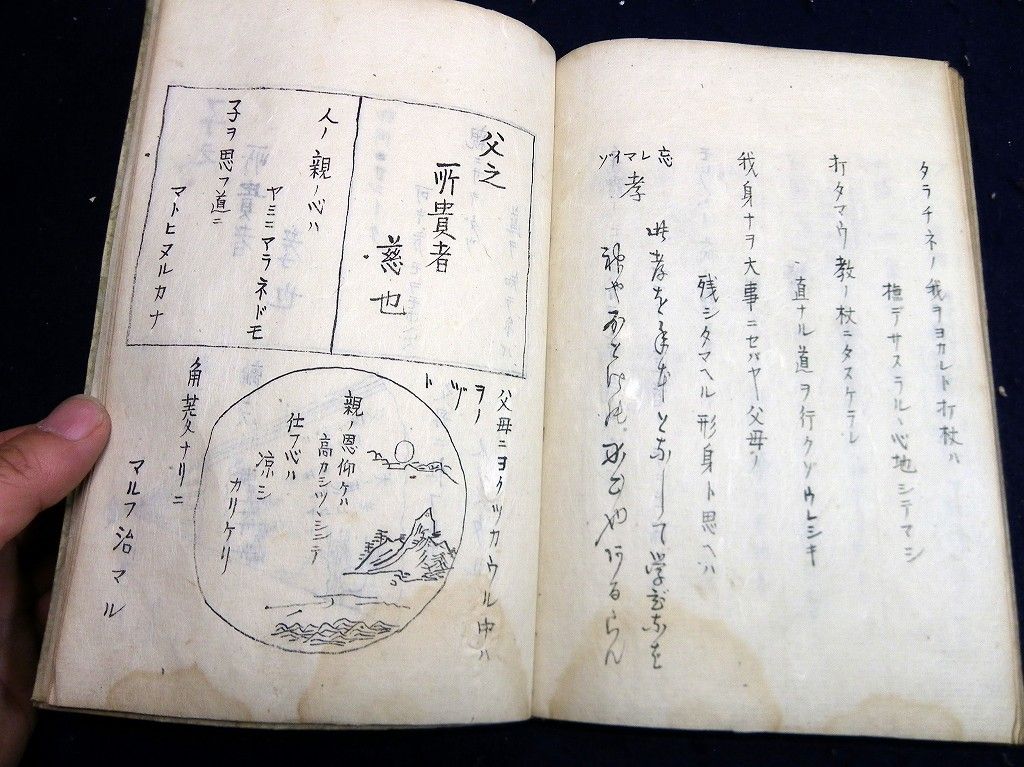 タラチネノ我ヲヨカレト打杖ハ
撫デサスラルヽ心地シテマシ
打タマウ教ノ杖ニタスケラレ
直ナル道ヲ行クゾウレシキ
我身ナヲ大事ニセバヤ父母ノ
残シタマヘル形身ト思ヘハ
忘レマイゾ
孝
此孝を
父之
所貴者
慈也
人ノ親ノ心ハ
ヤミニアラネドモ
子ヲ思フ道ニ
マトヒヌルカナ
父母ニヨクツカウル中ハ
ヲノヅト
親ノ恩仰ケハ
高カシツヽシミテ
仕フ心ハ
凉シ
カリケリ
角ナリニ
マルフ治マル